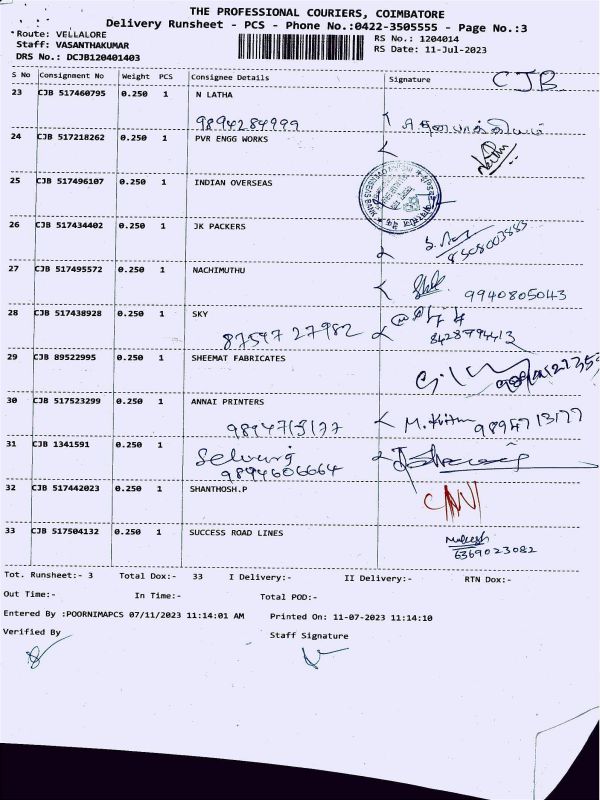 THE PROFESSIONAL COURIERS, COIMBATORE
Delivery Runsheet - PCS - Phone No.:0422-3505555 - Page No.:3
Route: VELLALORE
RS No.: 1204014
Staff: VASANTHAKUMAR
RS Date: 11-Jul-2023
DRS No.: DCJB120401403
S No Consignment No Weight PCS Consignee Details Signature CJB
23 CJB 517460795 0.250 1 N LATHA
9894284999
24 CJB 517218262 0.250 1 PVR ENGG WORKS
25 CJB 517496107 0.250 1 INDIAN OVERSEAS
26 CJB 517434402 0.250 1 JK PACKERS
8508003883
27 CJB 517495572 0.250 1 NACHIMUTHU
9940805043
28 CJB 517438928 0.250 1 SKY
87547 27982 8428994413
29 CJB 89522995 0.250 1 SHEEMAT FABRICATES
30 CJB 517523299 0.250 1 ANNAI PRINTERS
9894713177 9894713177
31 CJB 1341591 0.250 1 Selvaraj
9894606664
32 CJB 517442023 0.250 1 SHANTHOSH.P
33 CJB 517504132 0.250 1 SUCCESS ROAD LINES
Mukesh
6369023082
Tot. Runsheet:- 3 Total Dox:- 33 I Delivery:- II Delivery:- RTN Dox:-
Out Time:- In Time:- Total POD:-
Entered By :POORNIMAPCS 07/11/2023 11:14:01 AM Printed On: 11-07-2023 11:14:10
Verified By Staff Signature